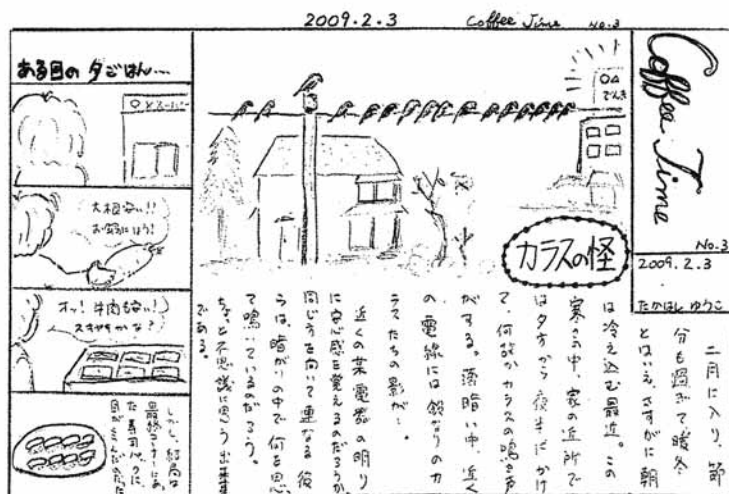 2009.2.3 Coffee Time No.3
Coffee Time
No.3
2009.2.3
たかはし ゆうこ
○△
でんき
カラスの怪
二月に入り、節
分も過ぎて暖冬
とはいえ、さすがに朝
は冷え込む最近。この
寒さの中、家の近所で
は夕方から夜半にかけ
て、何故かカラスの鳴き声
がする。薄暗い中、近く
の電線には鈴なりのカ
ラスたちの影が…。
近くの某電器の明り
に安心感を覚えるのだろうか。
同じ方を向いて連なる彼
らは、暗がりの中で何を思っ
て鳴いているのだろう。
ちょっと不思議に思う出来事
である。
ある日の夕ごはん…
大根安い!!
お鍋にしよう!
オッ!牛肉も安い!
スキヤキかな?
しかし、結局は
最終コーナーにあっ
た寿司パックに、
目がくらんだのだった